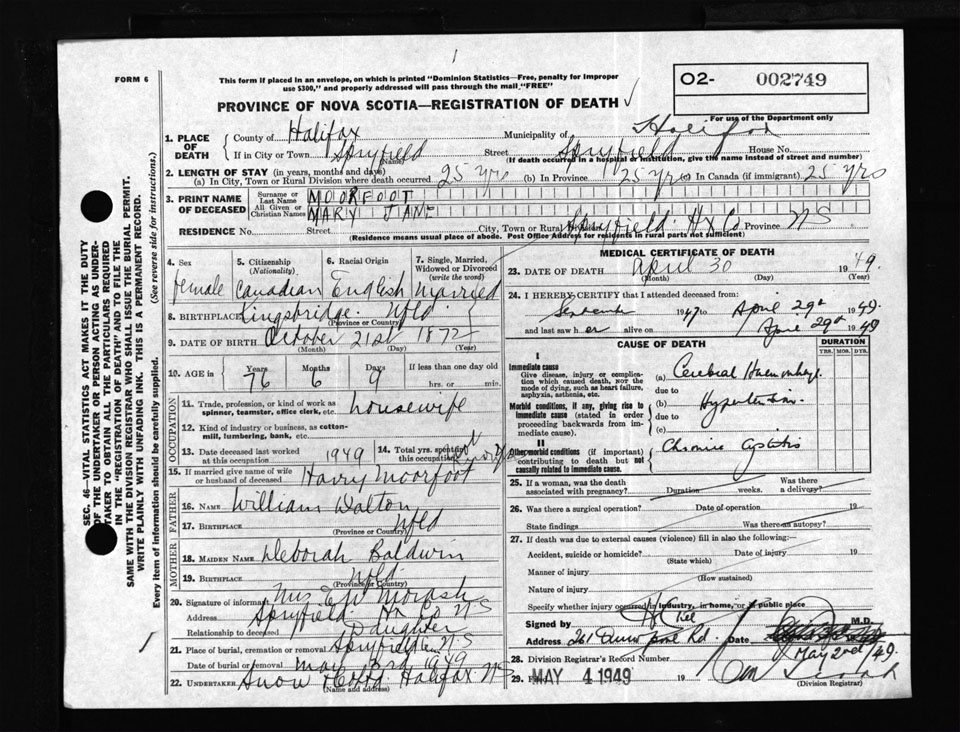 1
FORM 6
This form if placed in an envelope, on which is printed "Dominion Statistics—Free, penalty for improper
use $300," and properly addressed will pass through the mail "FREE"
O2- 002749
PROVINCE OF NOVA SCOTIA—REGISTRATION OF DEATH
For use of the Department only
1. PLACE OF DEATH County of Halifax Municipality of Halifax
If in City or Town Spryfield (Name) Street Spryfield House No.
(If death occurred in a hospital or institution, give the name instead of street and number)
2. LENGTH OF STAY (in years, months and days)
(a) In City, Town or Rural Division where death occurred 25 yrs (b) In Province 25 yrs (c) In Canada (if immigrant) 25 yrs
3. PRINT NAME OF DECEASED Surname or Last Name MOORFOOT
All Given or Christian Names MARY JANE
RESIDENCE No. Street City, Town or Rural Division Spryfield Hx Co Province NS
(Residence means usual place of abode. Post Office Address for residents in rural parts not sufficient)
4. Sex female
5. Citizenship (Nationality) Canadian
6. Racial Origin English
7. Single, Married, Widowed or Divorced (write the word) Married
8. BIRTHPLACE Kingsbridge. Nfld.
(Province or Country)
9. DATE OF BIRTH October 21st 1872
(Month) (Day) (Year)
10. AGE in Years 76 Months 6 Days 9 If less than one day old
hrs. or min.
OCCUPATION
11. Trade, profession, or kind of work as spinner, teamster, office clerk, etc. housewife
12. Kind of industry or business, as cotton-mill, lumbering, bank, etc.
13. Date deceased last worked at this occupation 1949 14. Total yrs. spent at this occupation not known
15. If married give name of wife or husband of deceased Harry Moorfoot
FATHER
16. NAME William Dalton
17. BIRTHPLACE Nfld
(Province or Country)
MOTHER
18. MAIDEN NAME Deborah Baldwin
19. BIRTHPLACE Nfld.
(Province or Country)
20. Signature of informant Mrs Morash
Address Spryfield Hx Co NS
Relationship to deceased Daughter
21. Place of burial, cremation or removal Spryfield NS
Date of burial or removal May 3rd 1949
22. UNDERTAKER Snow Halifax NS
(Name and address)
MEDICAL CERTIFICATE OF DEATH
23. DATE OF DEATH April 30 1949.
(Month) (Day) (Year)
24. I HEREBY CERTIFY that I attended deceased from:
September 1947 to April 29th 1949.
and last saw her alive on April 29th 1949
CAUSE OF DEATH
DURATION
YRS. MOS. DYS.
I
Immediate cause
Give disease, injury or complication which caused death, not the mode of dying, such as heart failure, asphyxia, asthenia, etc.
(a) Cerebral Haemorrhage
due to
Morbid conditions, if any, giving rise to immediate cause (stated in order proceeding backwards from immediate cause).
(b) Hypertension
due to
(c)
II
Other morbid conditions (if important) contributing to death but not causally related to immediate cause.
Chronic Cystitis
25. If a woman, was the death associated with pregnancy? Duration weeks. Was there a delivery?
26. Was there a surgical operation? Date of operation 19
State findings Was there an autopsy?
27. If death was due to external causes (violence) fill in also the following:
Accident, suicide or homicide? Date of injury 19
(State which)
Manner of injury
(How sustained)
Nature of injury
Specify whether injury occurred in industry, in home, or in public place
Signed by M.D.
Address 261 Rd. Date May 2nd/49.
28. Division Registrar's Record Number
29. Filed MAY 4 1949 19
(Division Registrar)
SEC. 46—VITAL STATISTICS ACT MAKES IT THE DUTY
OF THE UNDERTAKER OR PERSON ACTING AS UNDER-
TAKER TO OBTAIN ALL THE PARTICULARS REQUIRED
IN THE "REGISTRATION OF DEATH" AND TO FILE THE
SAME WITH THE DIVISION REGISTRAR WHO SHALL ISSUE THE BURIAL PERMIT.
WRITE PLAINLY WITH UNFADING INK. THIS IS A PERMANENT RECORD.
Every item of information should be carefully supplied. (See reverse side for instructions.)